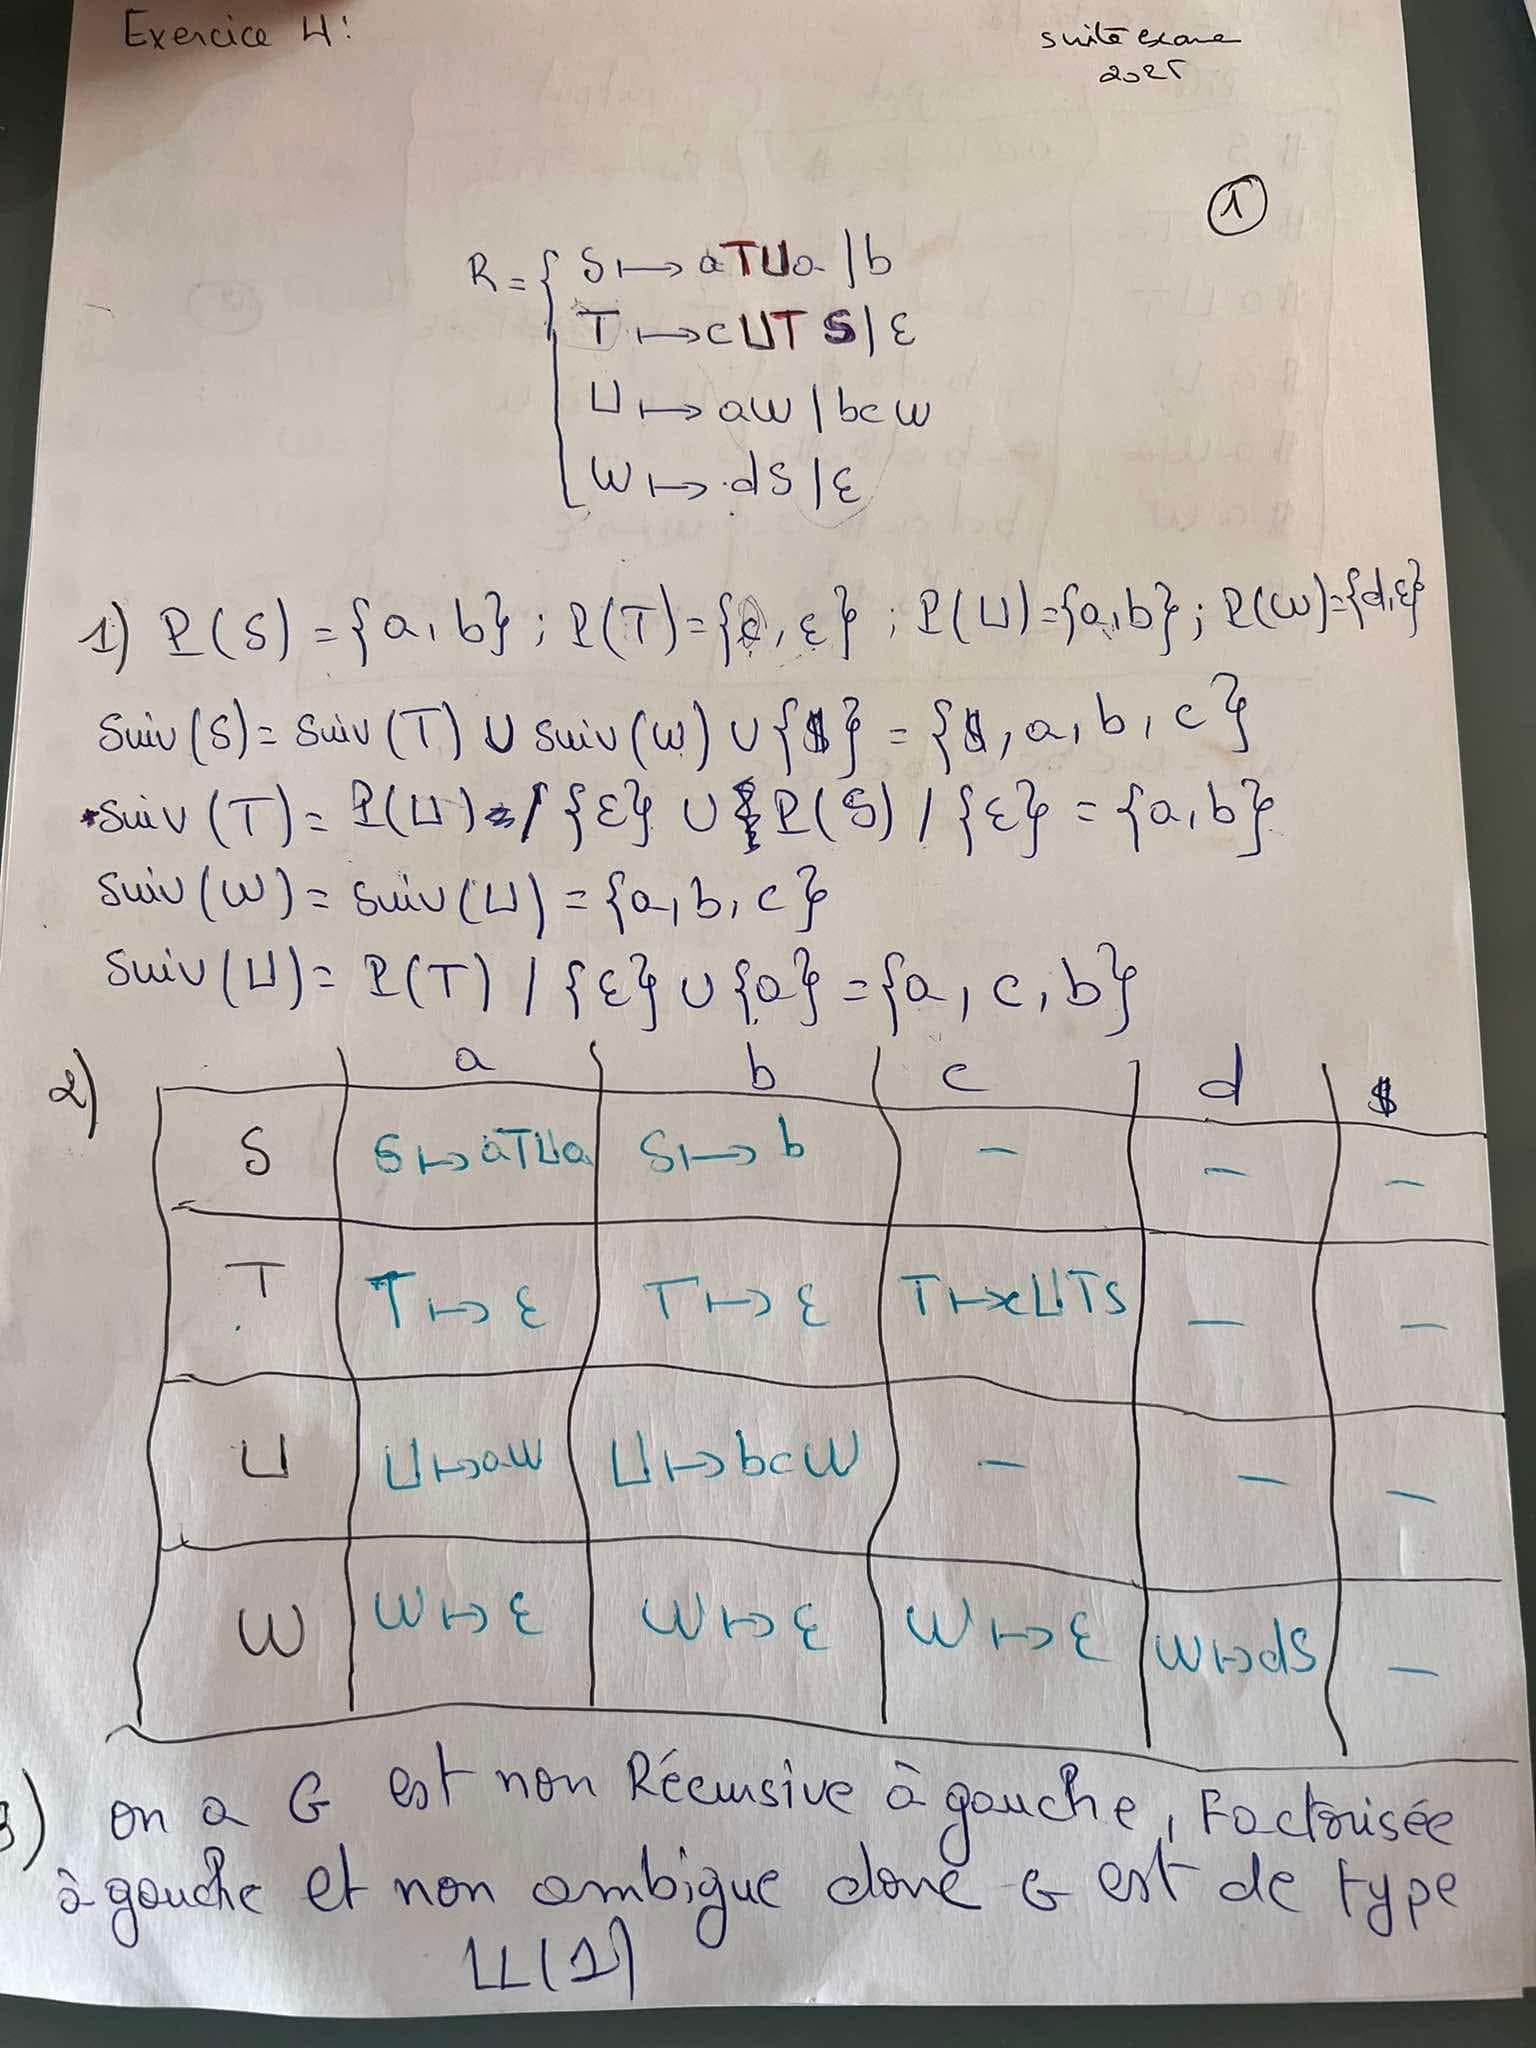 Exercice 4:
suite exane
2025
1
R = { S ↦ aTUa | b
T ↦ cUTS | ε
U ↦ aW | bcW
W ↦ dS | ε
1) P(S) = {a, b} ; P(T) = {c, ε} ; P(U) = {a, b} ; P(W) = {d, ε}
Suiv(S) = Suiv(T) ∪ Suiv(W) ∪ {$} = {$, a, b, c}
Suiv(T) = P(U) / {ε} ∪ P(S) / {ε} = {a, b}
Suiv(W) = Suiv(U) = {a, b, c}
Suiv(U) = P(T) / {ε} ∪ {a} = {a, c, b}
2) a b c d $
S S ↦ aTUa S ↦ b - - -
T T ↦ ε T ↦ ε T ↦ cUTS - -
U U ↦ aW U ↦ bcW - - -
W W ↦ ε W ↦ ε W ↦ ε W ↦ dS -
3) on a G est non Récursive à gauche, Factorisée
à gauche et non ambigue donc G est de type
LL(1)